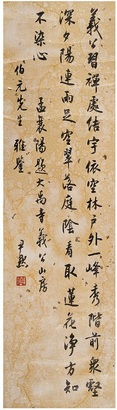 義公習禪處結宇依空林戶外一峰秀階前眾壑
深夕陽連雨足空翠落庭陰看取蓮花淨方知
不染心
孟襄陽題大禹寺義公山房
伯元先生雅鑒